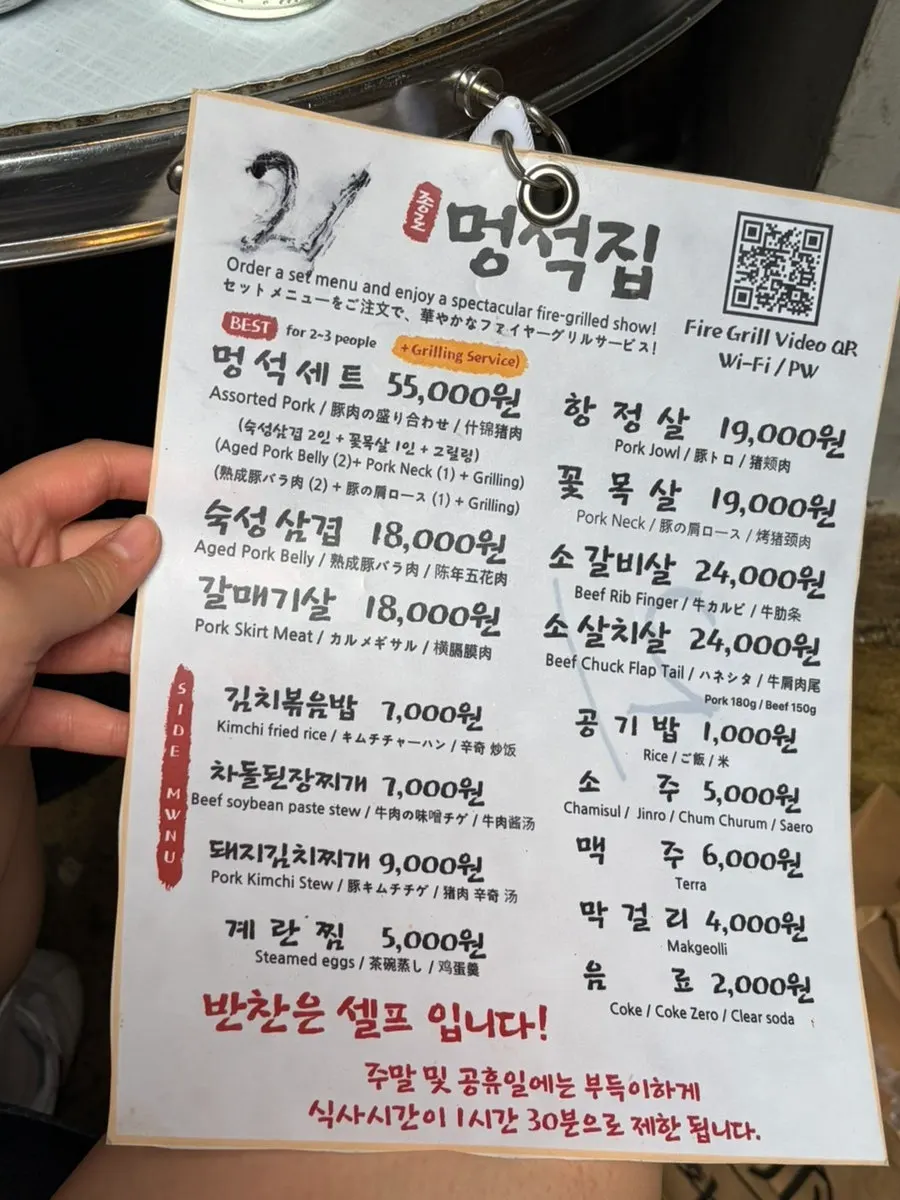 21
종로
멍석집
Order a set menu and enjoy a spectacular fire-grilled show!
セットメニューをご注文で、華やかなファイヤーグリルサービス!
Fire Grill Video QR
Wi-Fi / PW
BEST for 2-3 people + Grilling Service)
멍석세트 55,000원
Assorted Pork / 豚肉の盛り合わせ / 什锦猪肉
(숙성삼겹 2인 + 꽃목살 1인 + 그릴링)
(Aged Pork Belly (2)+ Pork Neck (1) + Grilling)
(熟成豚バラ肉 (2) + 豚の肩ロース (1) + Grilling)
숙성삼겹 18,000원
Aged Pork Belly / 熟成豚バラ肉 / 陈年五花肉
갈매기살 18,000원
Pork Skirt Meat / カルメギサル / 横膈膜肉
항정살 19,000원
Pork Jowl / 豚トロ / 猪颊肉
꽃목살 19,000원
Pork Neck / 豚の肩ロース / 烤猪颈肉
소갈비살 24,000원
Beef Rib Finger / 牛カルビ / 牛肋条
소살치살 24,000원
Beef Chuck Flap Tail / ハネシタ / 牛肩肉尾
Pork 180g / Beef 150g
SIDE MWNU
김치볶음밥 7,000원
Kimchi fried rice / キムチチャーハン / 辛奇 炒饭
차돌된장찌개 7,000원
Beef soybean paste stew / 牛肉の味噌チゲ / 牛肉酱汤
돼지김치찌개 9,000원
Pork Kimchi Stew / 豚キムチチゲ / 猪肉 辛奇 汤
계란찜 5,000원
Steamed eggs / 茶碗蒸し / 鸡蛋羹
공기밥 1,000원
Rice / ご飯 / 米
소주 5,000원
Chamisul / Jinro / Chum Churum / Saero
맥주 6,000원
Terra
막걸리 4,000원
Makgeolli
음료 2,000원
Coke / Coke Zero / Clear soda
반찬은 셀프 입니다!
주말 및 공휴일에는 부득이하게
식사시간이 1시간 30분으로 제한 됩니다.